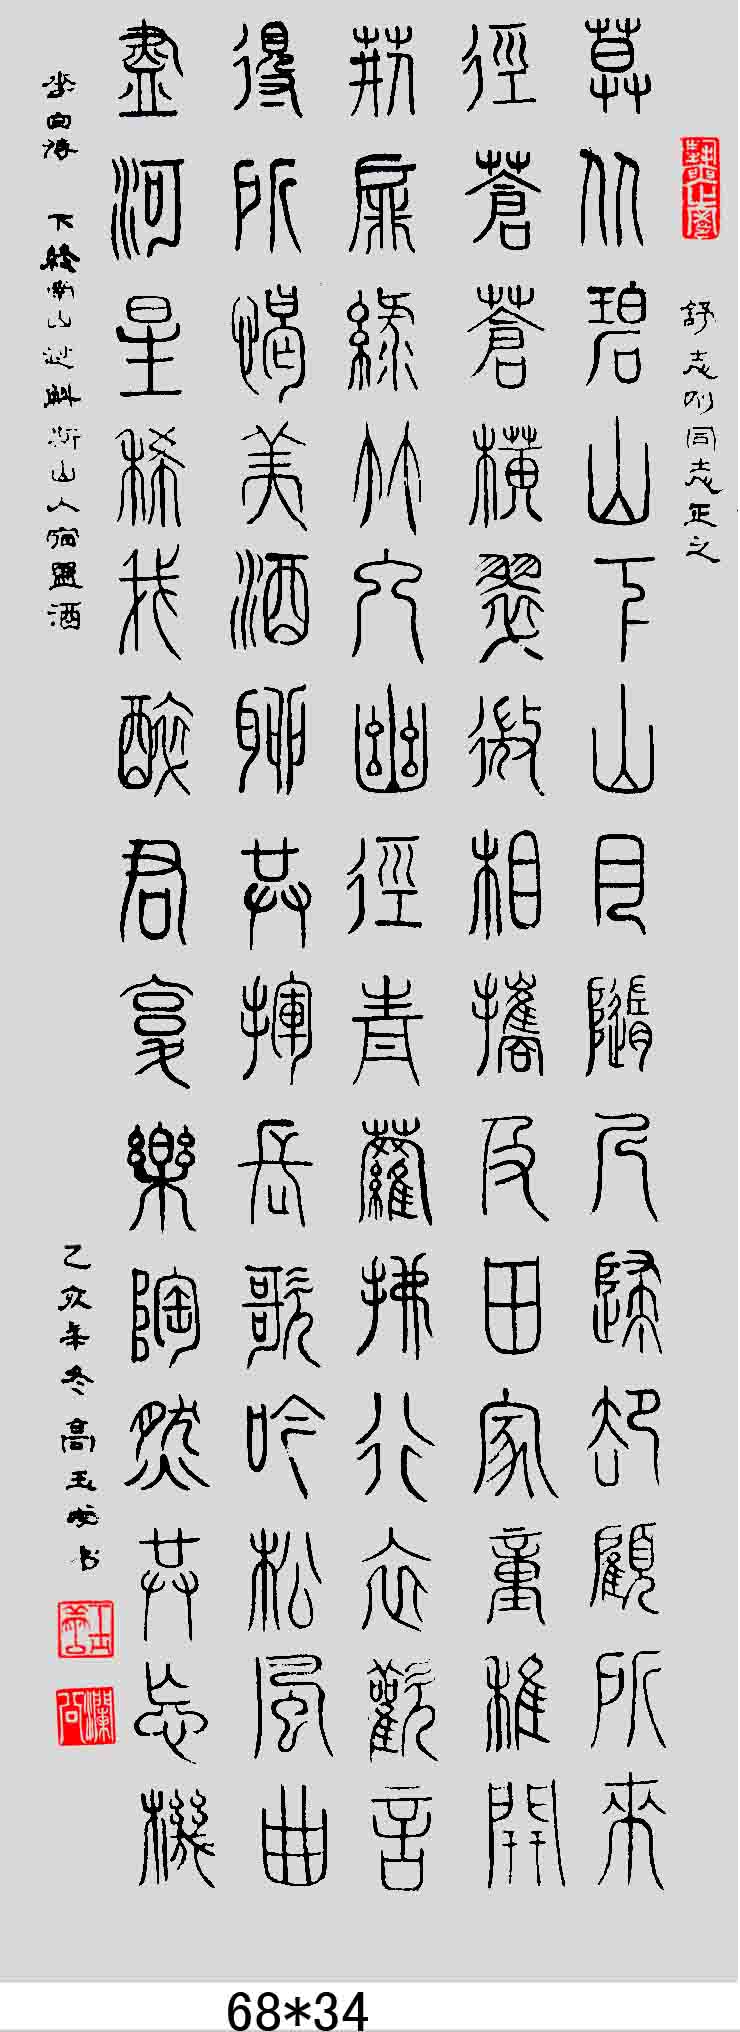 舒志刚同志正之
暮从碧山下山月隨人歸却顧所來
徑蒼蒼橫翠微相攜及田家童稚開
荊扉綠竹入幽徑青蘿拂行衣歡言
得所憩美酒聊共揮長歌吟松風曲
盡河星稀我醉君复樂陶然共忘機
李白詩 下終南山过斛斯山人宿置酒
乙亥年冬高玉书
68*34